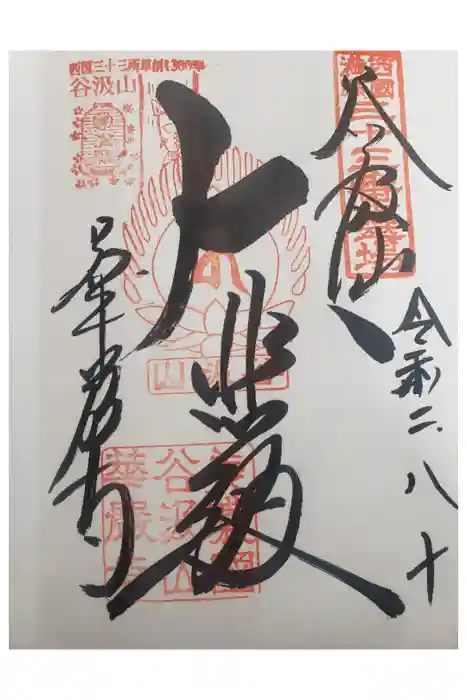 西国三十三所草創1300年
谷汲山
西國第三十三番霊場
谷汲山
令和二、八、十
大悲殿
谷汲山
華厳寺
美濃國
谷汲山
華嚴寺